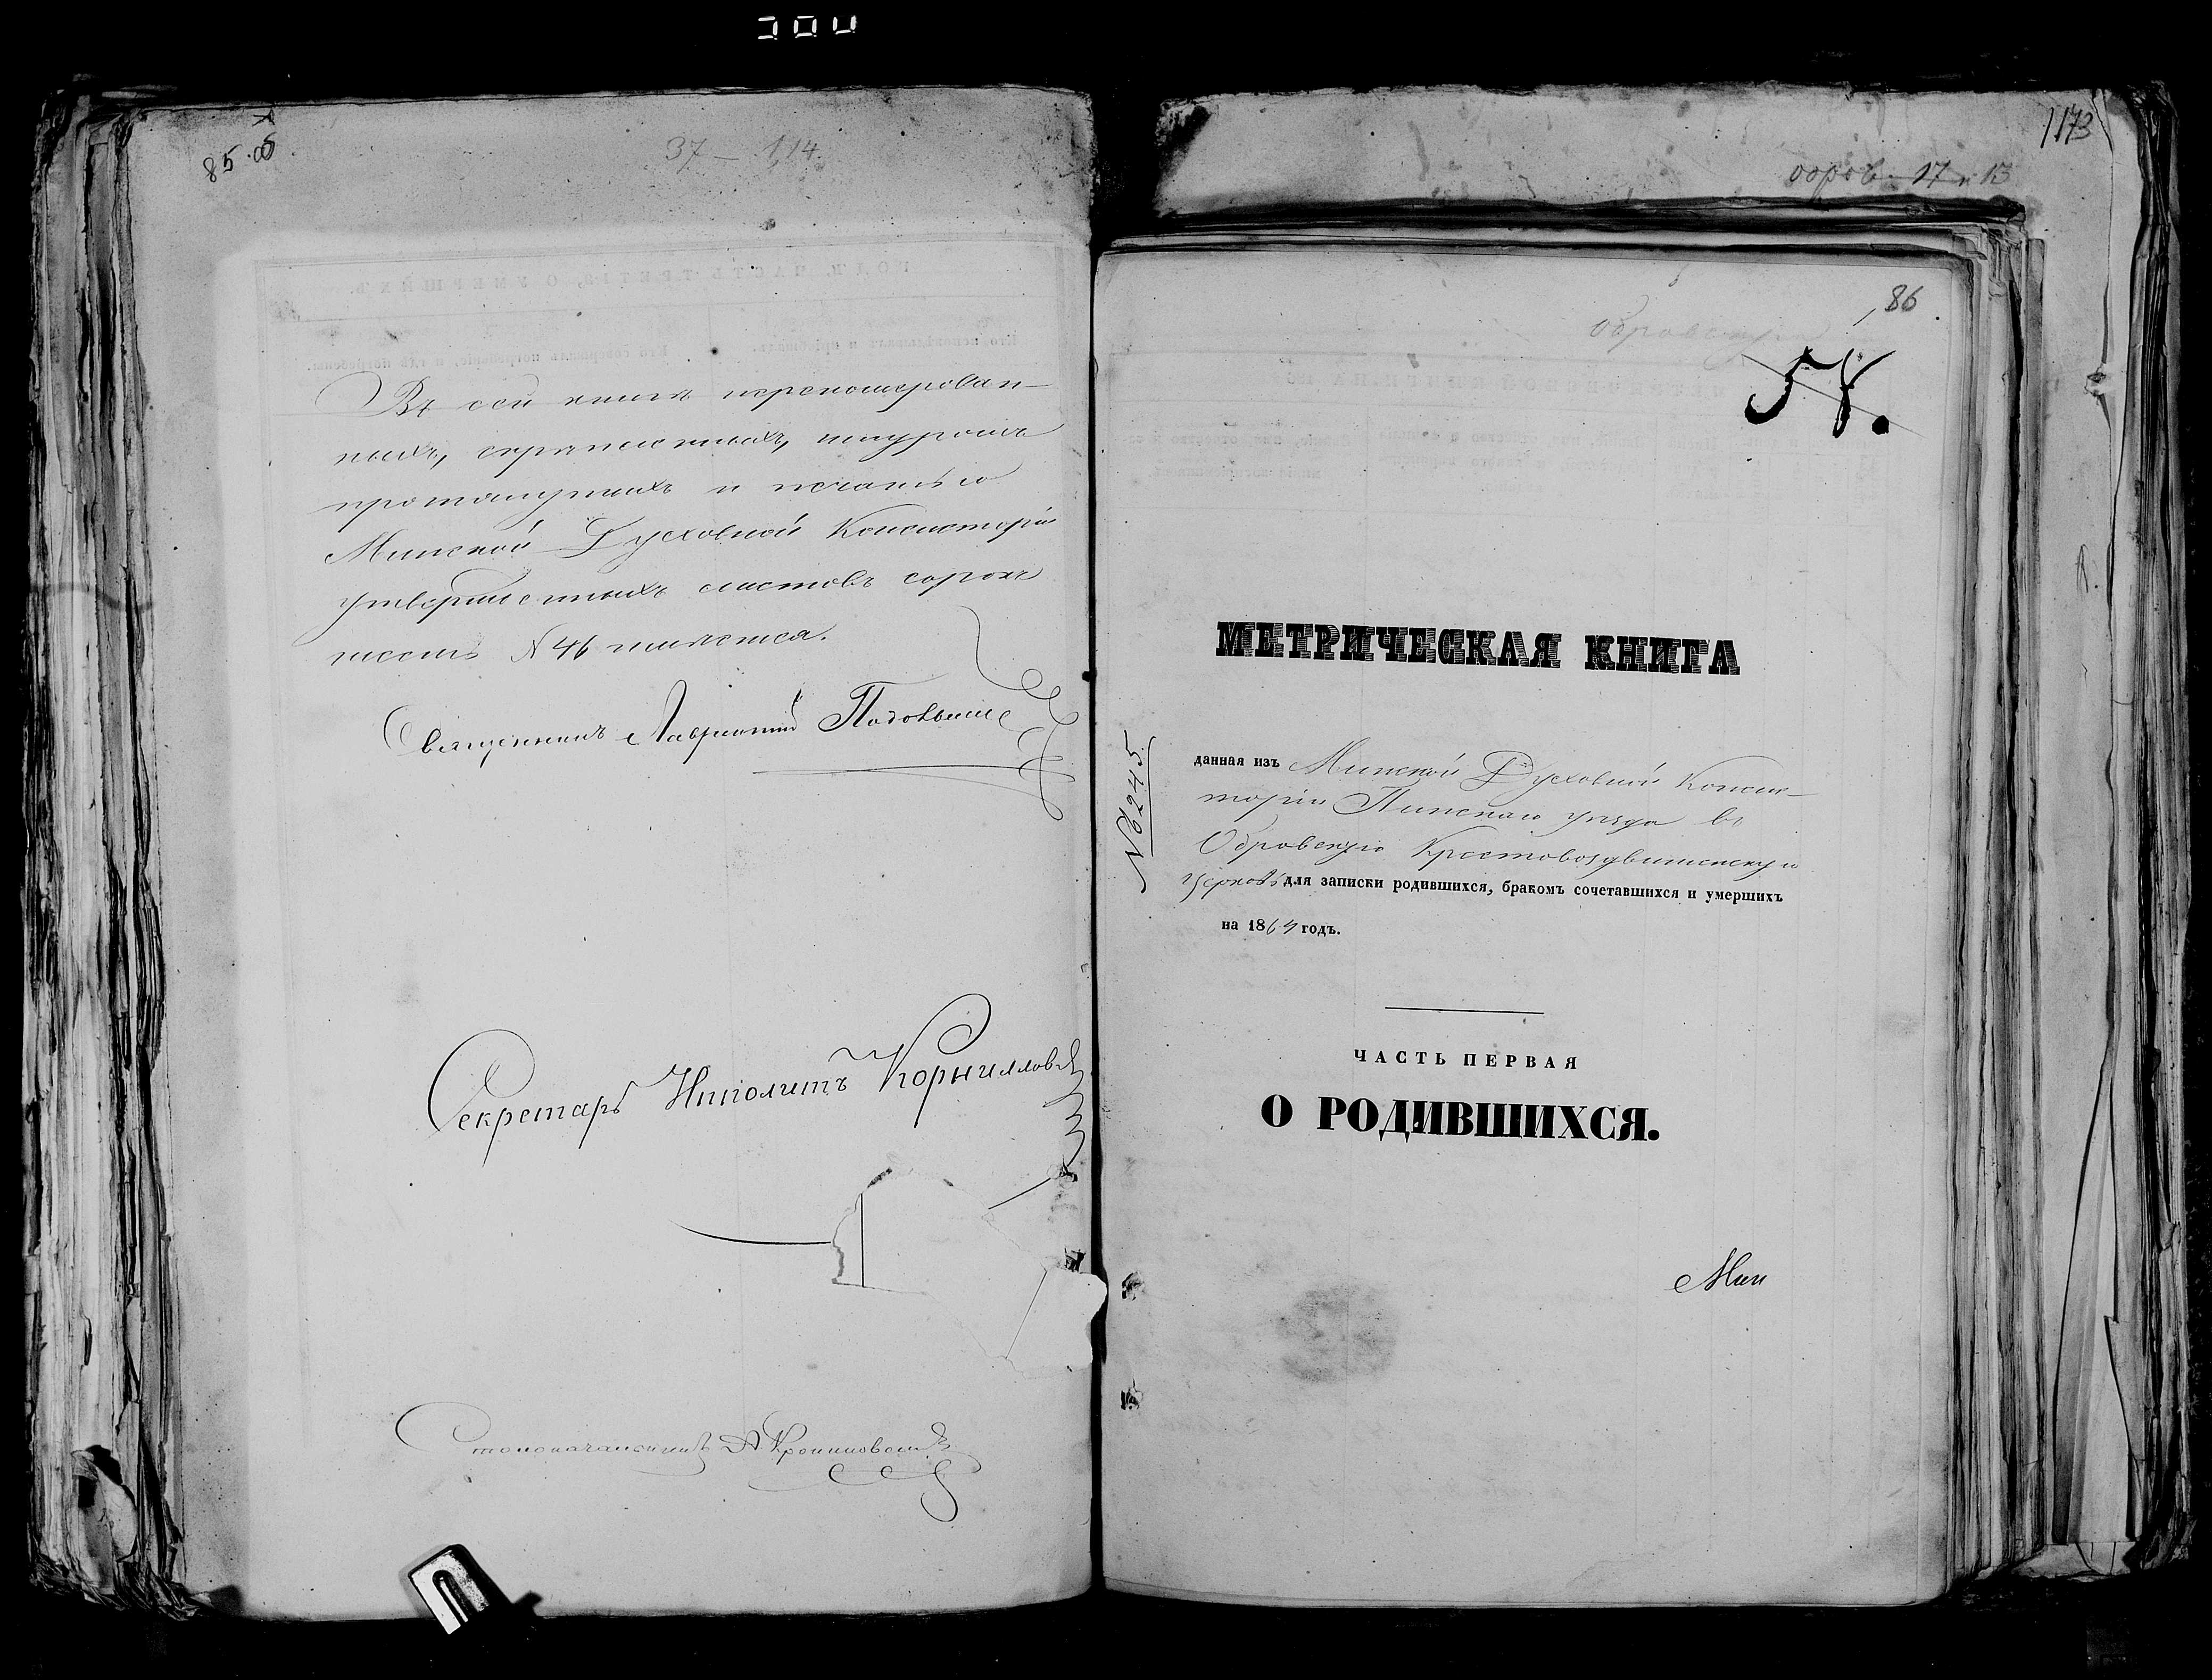 85 об
37 — 114.
Въ сей книгѣ перенумерован-
ныхъ, скрѣпленныхъ, шнуромъ
протянутыхъ и печатью
Минской Духовной Консисторіи
утвержденныхъ листовъ сорокъ
шесть N 46 имѣется.
Священникъ Лаврентій
Секретарь Ипполитъ Корниллов
Столоначальникъ А
1173
обров. 17 и 13
86
Обровскую
58.
МЕТРИЧЕСКАЯ КНИГА
N 6245.
данная изъ Минской Духовной Консис-
торіи Пинскаго уѣзда въ
Обровскую Крестовоздвиженскую
церковь для записки родившихся, бракомъ сочетавшихся и умершихъ
на 1864 годъ.
ЧАСТЬ ПЕРВАЯ
О РОДИВШИХСЯ.
Мин